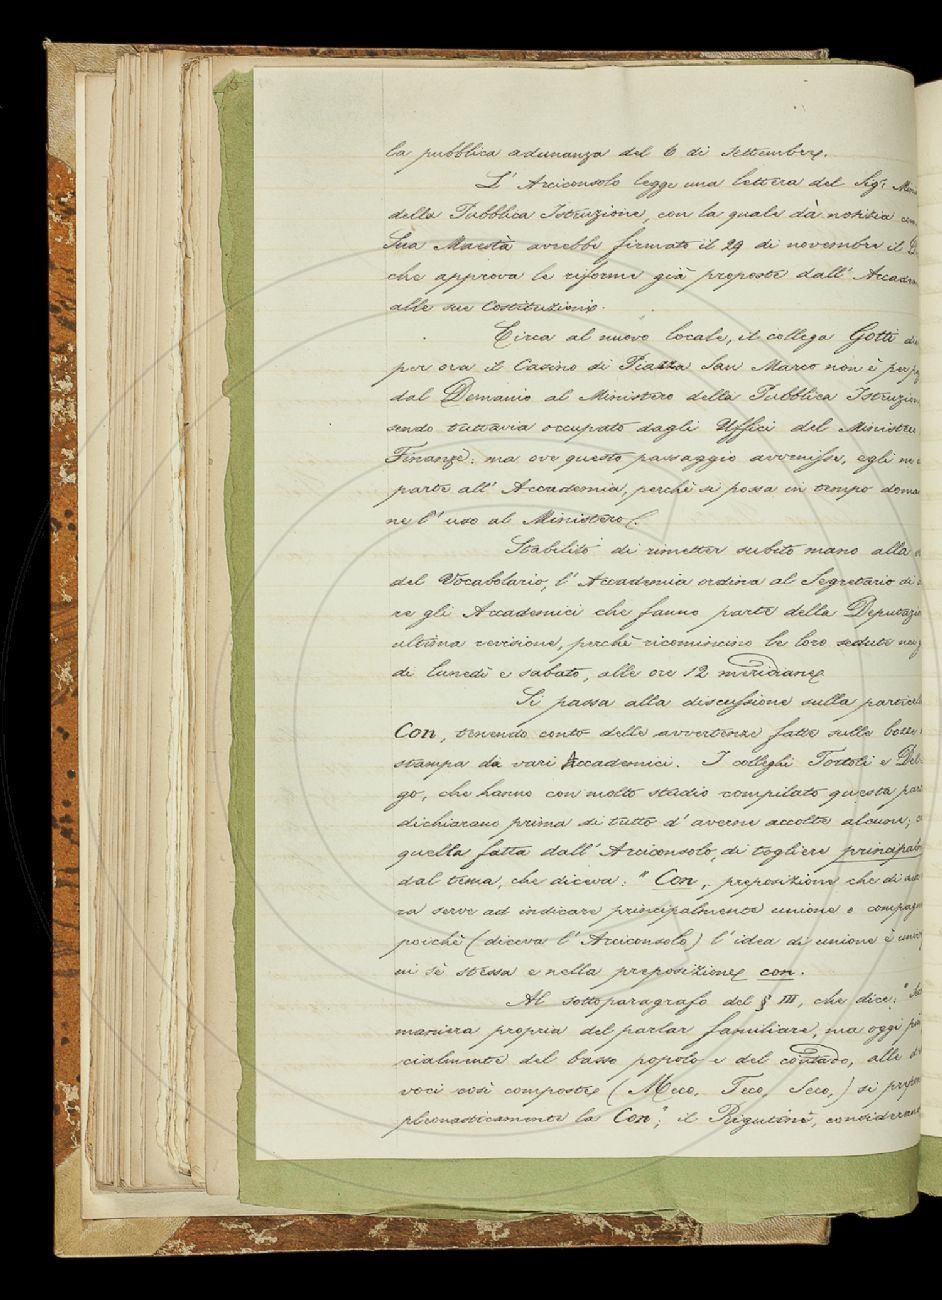 la pubblica adunanza del 6 di Settembre.
L' Arciconsolo legge una lettera del Sigr.
della Pubblica Istruzione, con la quale dà notizia
Sua Maestà avrebbe firmato il 29 di novembre il
che approva le riforme già proposte dall'
alle sue Costituzioni.
Circa al nuovo locale, il collega Gotti
per ora il Casino di Piazza San Marco non è
dal Demanio al Ministero della Pubblica
sendo tuttavia occupato dagli Uffici del
Finanze: ma ove questo passaggio avvenisse, egli
parte all' Accademia, perchè si possa in tempo
ne l' uso al Ministero.
Stabilito di rimetter subito mano alla
del Vocabolario, l' Accademia ordina al Segretario di
re gli Accademici che fanno parte della
ultima revisione, perchè ricomincino le loro sedute
di lunedì e sabato, alle ore 12 meridiane
Si passa alla discussione sulla
Con, tenendo conto delle avvertenze fatte sulle
stampa da vari Accademici. I colleghi Tortoli e
go, che hanno con molto studio compilato questa
dichiarano prima di tutto d' averne accolte alcune;
quella fatta dall' Arciconsolo, di togliere
dal tema, che diceva: " Con, preposizione che di
ra serve ad indicare principalmente unione o
poichè (diceva l' Arciconsolo) l' idea di unione è
in sè stessa e nella preposizione con.
Al sottoparagrafo del § III, che dice: "
maniera propria del parlar familiare, ma oggi
cialmente del basso popolo e del contado, alle
voci così composte (Meco, Teco, Seco,) si
pleonasticamente la Con"; il Rigutini,